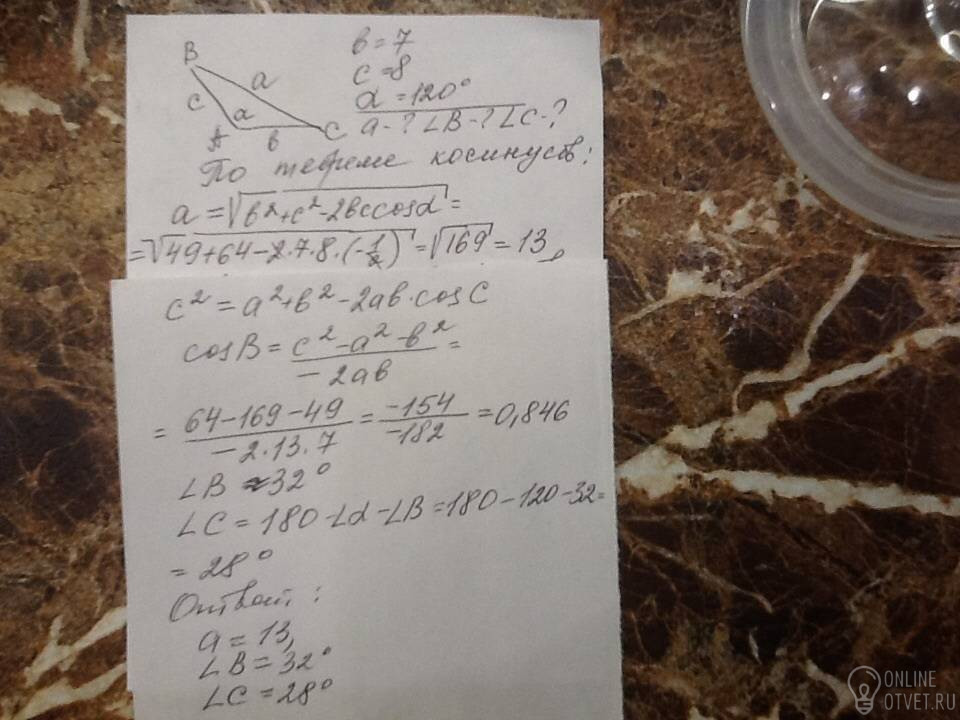 B
a
c
α
A
в
C
в = 7
c = 8
α = 120°
a - ? ∠B - ? ∠C - ?
По теореме косинусов:
a = √в²+c²-2вccosα =
= √49+64-2·7·8·(-1/2) = √169 = 13,
c² = a²+в²-2aв·cosC
cosB = (c²-a²-в²)/(-2aв) =
= (64-169-49)/(-2·13·7) = (-154)/(-182) = 0,846
∠B ≈ 32°
∠C = 180-∠α-∠B = 180-120-32=
= 28°
Ответ:
a = 13,
∠B = 32°
∠C = 28°
ONLINE
OTVET.RU